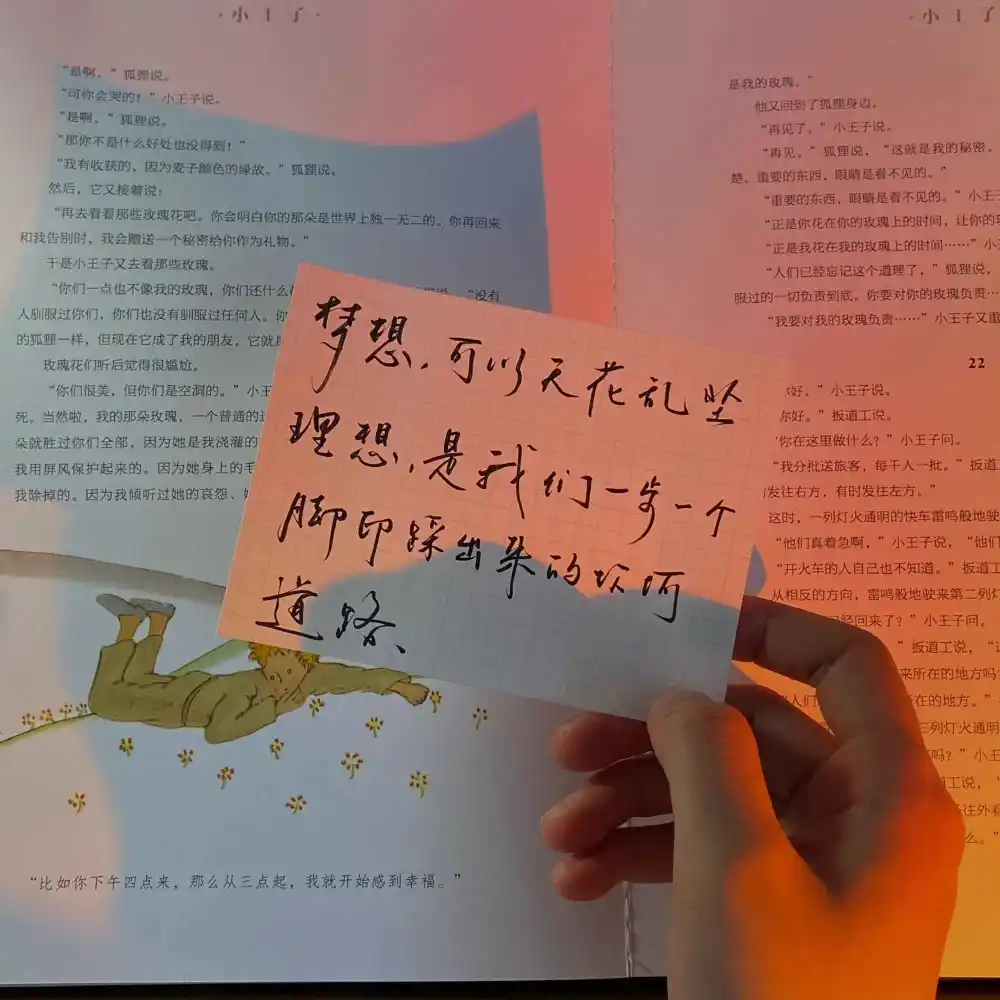 ·小王子·
“是啊。”狐狸说。
“可你会哭的！”小王子说。
“是啊。”狐狸说。
“那你不是什么好处也没得到！”
“我有收获的，因为麦子颜色的缘故。”狐狸说。
然后，它又接着说：
“再去看看那些玫瑰花吧。你会明白你的那朵是世界上独一无二的。你再回来
和我告别时，我会赠送一个秘密给你作为礼物。”
于是小王子又去看那些玫瑰。
“你们一点也不像我的玫瑰，你们还什么
“没有
人驯服过你们，你们也没有驯服过任何人。你
的狐狸一样，但现在它成了我的朋友，它就
玫瑰花们听后觉得很尴尬。
“你们很美，但你们是空洞的。”小王
死。当然啦，我的那朵玫瑰，一个普通的
朵就胜过你们全部，因为她是我浇灌的
我用屏风保护起来的。因为她身上的毛
我除掉的。因为我倾听过她的哀怨、
“比如你下午四点来，那么从三点起，我就开始感到幸福。”
梦想，可以天花乱坠
理想，是我们一步一个
脚印踩出来的坎坷
道路、
·小王子
是我的玫瑰。”
他又回到了狐狸身边。
“再见了。”小王子说。
“再见。”狐狸说，“这就是我的秘密。
楚。重要的东西，眼睛是看不见的。”
“重要的东西，眼睛是看不见的。”小王
“正是你花在你的玫瑰上的时间，让你的
“正是我花在我的玫瑰上的时间……”小
“人们已经忘记这个道理了，”狐狸说，
服过的一切负责到底。你要对你的玫瑰负责…
“我要对我的玫瑰负责……”小王子又重
22
你好。”小王子说。
你好。”扳道工说。
“你在这里做什么？”小王子问。
“我分批送旅客，每千人一批。”扳道
发往右方，有时发往左方。”
这时，一列灯火通明的快车雷鸣般地驶
“他们真着急啊，”小王子说，“他们
“开火车的人自己也不知道。”扳道工
从相反的方向，雷鸣般地驶来第二列灯
经回来了？”小王子问。
”扳道工说，“
来所在的地方吗
人们
所在的地方。”
三列灯火通明
吗？”小王
扳道工说，“
往外看
么。”